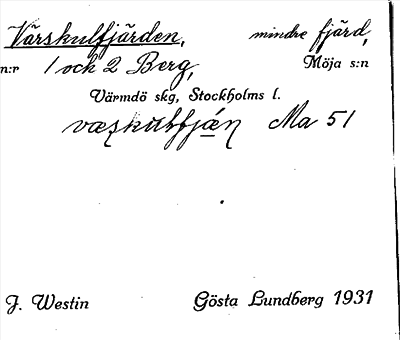 Vårskulfjärden, mindre fjärd,
n:r 1 och 2 Berg, Möja s:n
Värmdö skg, Stockholms l.
Ma 51
J. Westin Gösta Lundberg 1931